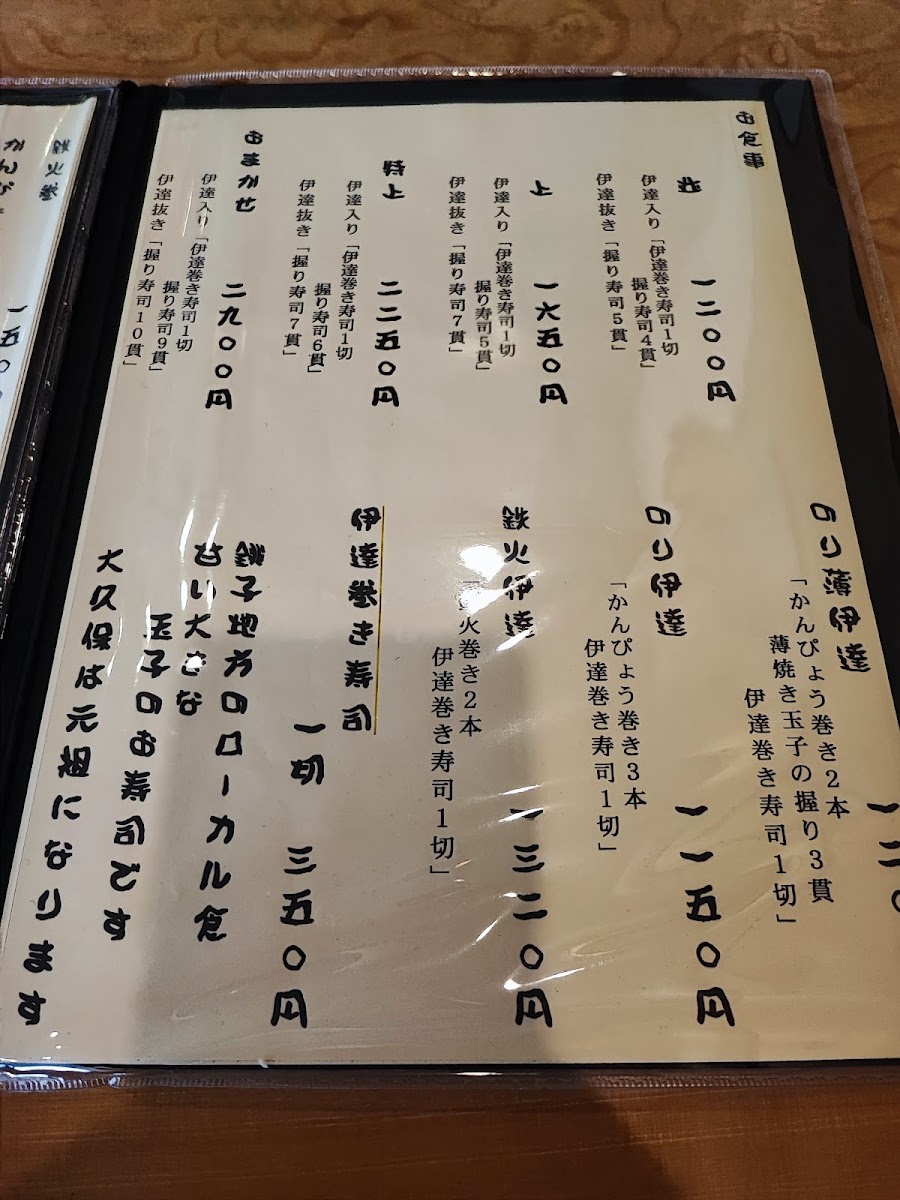 お食事
並 一二〇〇円
伊達入り「伊達巻き寿司1切
握り寿司4貫」
伊達抜き「握り寿司5貫」
上 一六五〇円
伊達入り「伊達巻き寿司1切
握り寿司5貫」
伊達抜き「握り寿司7貫」
特上 二二五〇円
伊達入り「伊達巻き寿司1切
握り寿司6貫」
伊達抜き「握り寿司7貫」
おまかせ 二九〇〇円
伊達入り「伊達巻き寿司1切
握り寿司9貫」
伊達抜き「握り寿司10貫」
のり薄伊達 一二〇
「かんぴょう巻き2本
薄焼き玉子の握り3貫
伊達巻き寿司1切」
のり伊達 一一五〇円
「かんぴょう巻き3本
伊達巻き寿司1切」
鉄火伊達 一三二〇円
火巻き2本
伊達巻き寿司1切」
伊達巻き寿司
一切 三五〇円
銚子地方のローカル食
甘い大きな
玉子のお寿司です
大久保は元祖になります
鉄火巻 一五〇
かんぴ